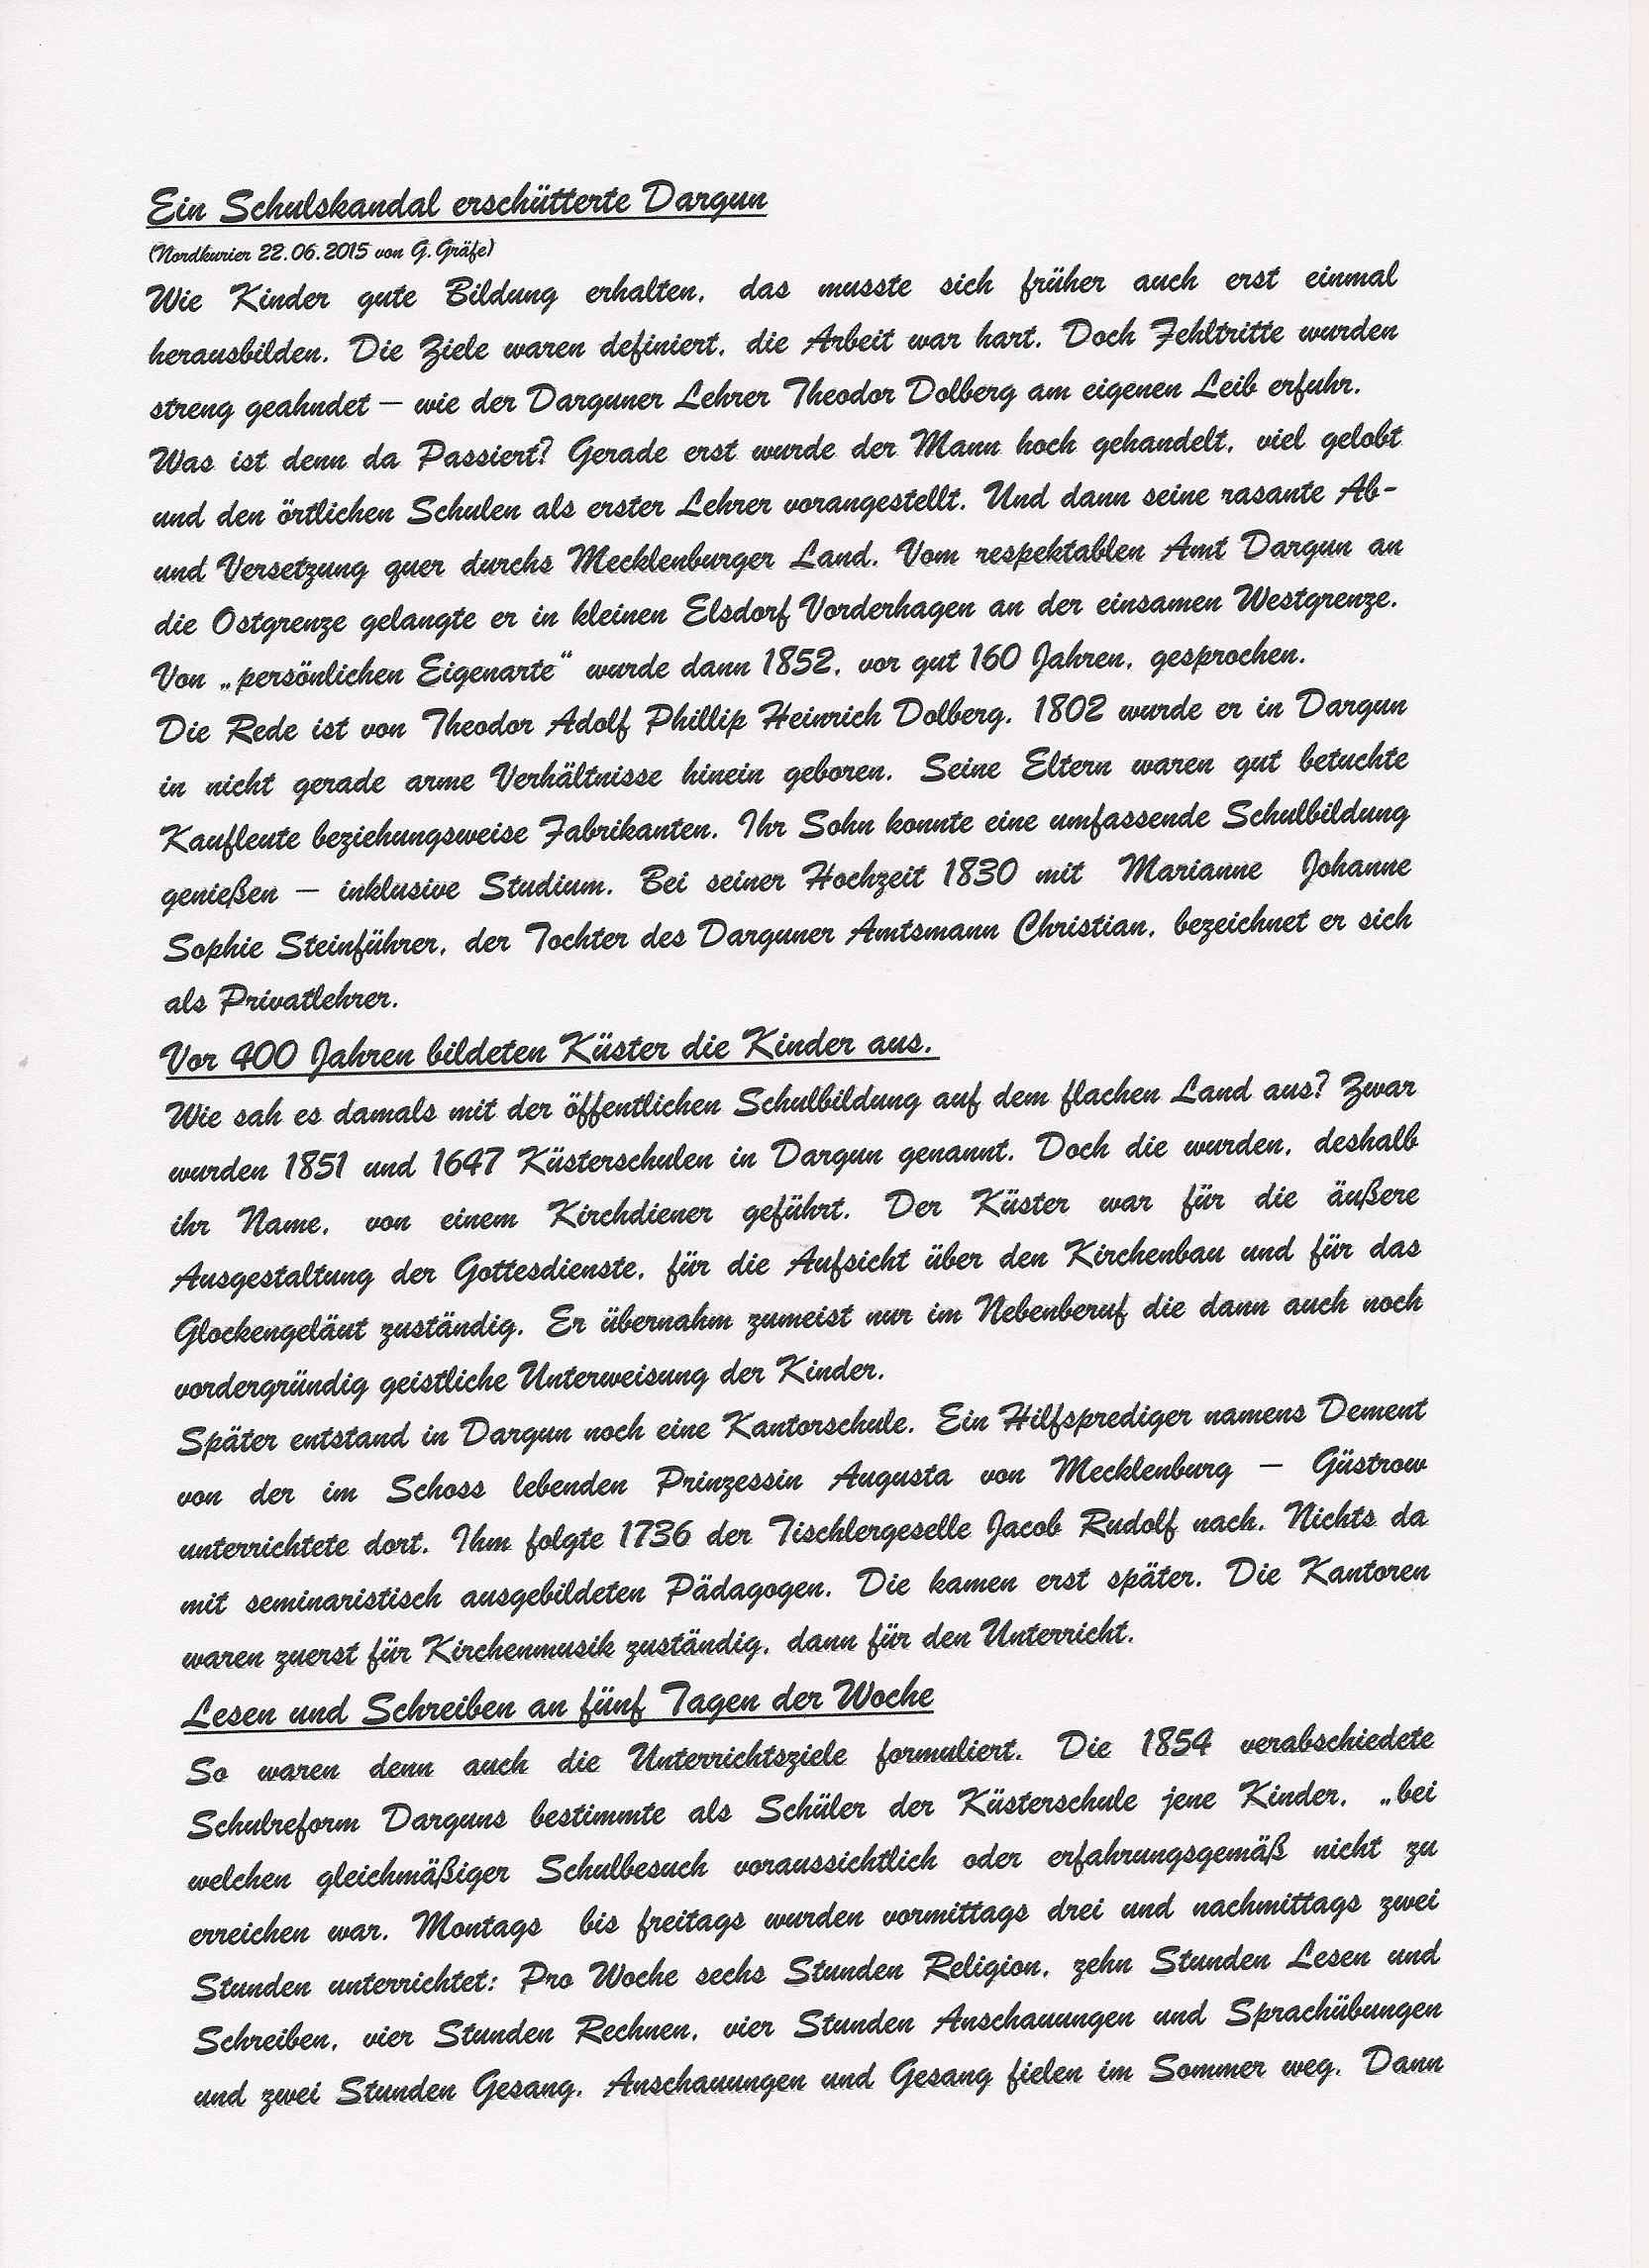 Ein Schulskandal erschütterte Dargun
(Nordkurier 22.06.2015 von G. Gräfe)
Wie Kinder gute Bildung erhalten, das musste sich früher auch erst einmal
herausbilden. Die Ziele waren definiert, die Arbeit war hart. Doch Fehltritte wurden
streng geahndet – wie der Darguner Lehrer Theodor Dolberg am eigenen Leib erfuhr.
Was ist denn da Passiert? Gerade erst wurde der Mann hoch gehandelt, viel gelobt
und den örtlichen Schulen als erster Lehrer vorangestellt. Und dann seine rasante Ab-
und Versetzung quer durchs Mecklenburger Land. Vom respektablen Amt Dargun an
die Ostgrenze gelangte er in kleinen Elsdorf Vorderhagen an der einsamen Westgrenze.
Von „persönlichen Eigenarte“ wurde dann 1852, vor gut 160 Jahren, gesprochen.
Die Rede ist von Theodor Adolf Phillip Heinrich Dolberg. 1802 wurde er in Dargun
in nicht gerade arme Verhältnisse hinein geboren. Seine Eltern waren gut betuchte
Kaufleute beziehungsweise Fabrikanten. Ihr Sohn konnte eine umfassende Schulbildung
genießen – inklusive Studium. Bei seiner Hochzeit 1830 mit Marianne Johanne
Sophie Steinführer, der Tochter des Darguner Amtsmann Christian, bezeichnet er sich
als Privatlehrer.
Vor 400 Jahren bildeten Küster die Kinder aus.
Wie sah es damals mit der öffentlichen Schulbildung auf dem flachen Land aus? Zwar
wurden 1851 und 1647 Küsterschulen in Dargun genannt. Doch die wurden, deshalb
ihr Name, von einem Kirchdiener geführt. Der Küster war für die äußere
Ausgestaltung der Gottesdienste, für die Aufsicht über den Kirchenbau und für das
Glockengeläut zuständig. Er übernahm zumeist nur im Nebenberuf die dann auch noch
vordergründig geistliche Unterweisung der Kinder.
Später entstand in Dargun noch eine Kantorschule. Ein Hilfsprediger namens Dement
von der im Schoss lebenden Prinzessin Augusta von Mecklenburg – Güstrow
unterrichtete dort. Ihm folgte 1736 der Tischlergeselle Jacob Rudolf nach. Nichts da
mit seminaristisch ausgebildeten Pädagogen. Die kamen erst später. Die Kantoren
waren zuerst für Kirchenmusik zuständig, dann für den Unterricht.
Lesen und Schreiben an fünf Tagen der Woche
So waren denn auch die Unterrichtsziele formuliert. Die 1854 verabschiedete
Schulreform Darguns bestimmte als Schüler der Küsterschule jene Kinder, „bei
welchen gleichmäßiger Schulbesuch voraussichtlich oder erfahrungsgemäß nicht zu
erreichen war. Montags bis freitags wurden vormittags drei und nachmittags zwei
Stunden unterrichtet: Pro Woche sechs Stunden Religion, zehn Stunden Lesen und
Schreiben, vier Stunden Rechnen, vier Stunden Anschauungen und Sprachübungen
und zwei Stunden Gesang. Anschauungen und Gesang fielen im Sommer weg. Dann